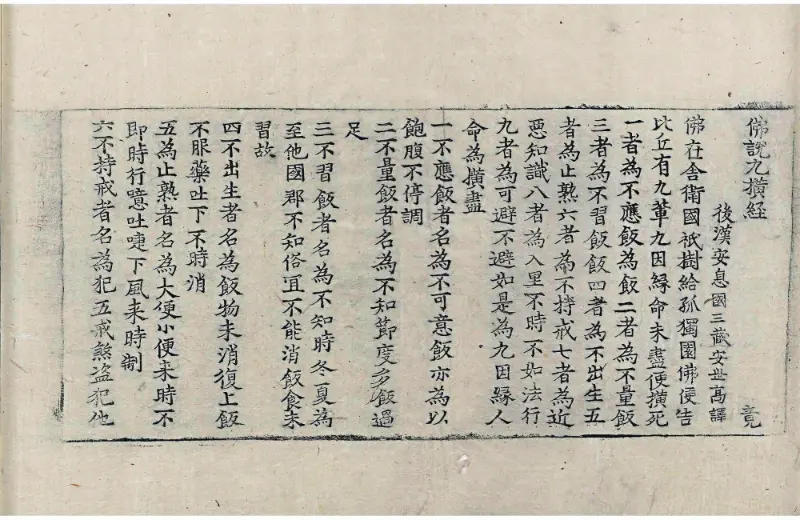 佛說九橫經 竟
後漢安息國三藏安世高譯
佛在舍衛國祇樹給孤獨園佛便告
比丘有九軰九因縁命未盡便橫死
一者為不應飯為飯二者為不量飯
三者為不習飯飯四者為不出生五
者為止熟六者為不持戒七者為近
惡知識八者為入里不時不如法行
九者為可避不避如是為九因縁人
命為橫盡
一不應飯者名為不可意飯亦為以
飽腹不停調
二不量飯者名為不知莭度多飯過
足
三不習飯者名為不知時冬夏為
至他國郡不知俗冝不能消飯食未
習故
四不出生者名為飯物未消復上飯
不服藥吐下不時消
五為止熟者名為大便小便来時不
即時行噫吐啑下風来時制
六不持戒者名為犯五戒煞盜犯他